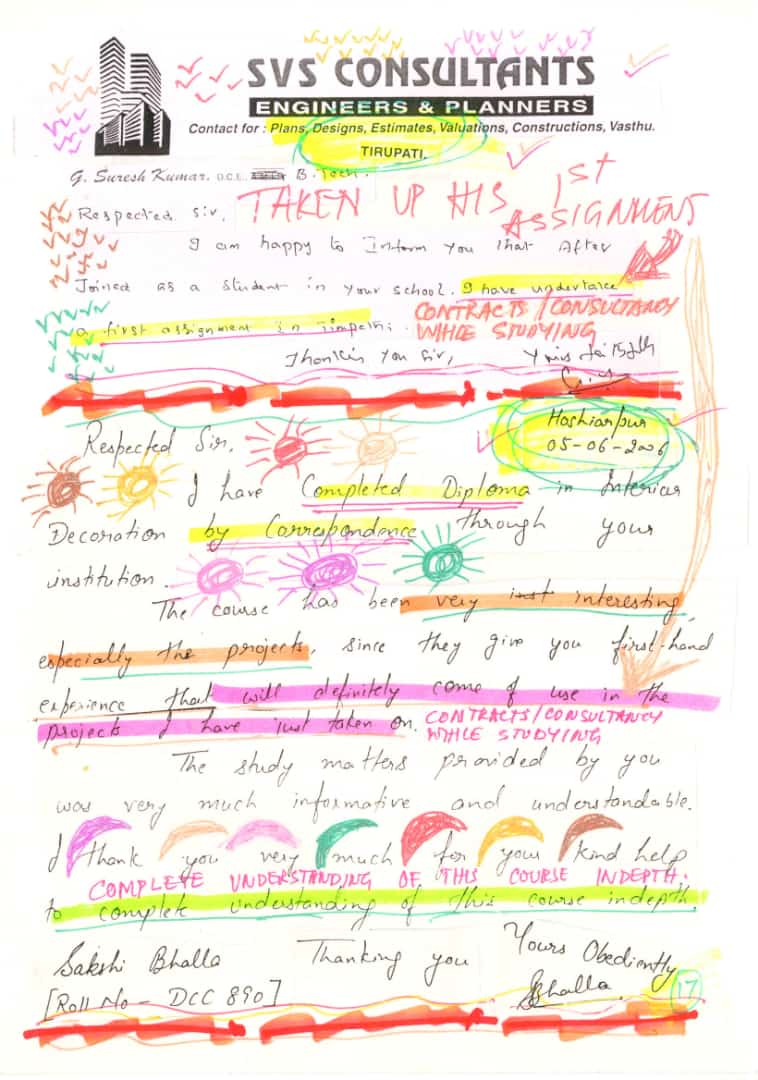 SVS CONSULTANTS
ENGINEERS & PLANNERS
Contact for : Plans, Designs, Estimates, Valuations, Constructions, Vasthu.
TIRUPATI.
G. Suresh Kumar, D.C.E. B.Tech.
TAKEN UP HIS 1ST
ASSIGNMENT
Respected Sir,
I am happy to Inform you that After
Joined as a Student in your school. I have undertake
a first assignment in
CONTRACTS/CONSULTANCY
WHILE STUDYING
you Sir,
Hoshiarpur
05-06-2006
Respected Sir,
I have Completed Diploma in Interior
Decoration by Correspondence through your
institution.
The course has been very interesting,
especially the projects, since they give you first-hand
experience that will definitely come of use in the
projects I have just taken on. CONTRACTS/CONSULTANCY
WHILE STUDYING
The study matters provided by you
was very much informative and understandable.
I thank you very much for your kind help
COMPLETE UNDERSTANDING OF THIS COURSE INDEPTH.
to complete understanding of this course indepth.
Sakshi Bhalla Thanking you Yours Obediently
[Roll No - DCC 890] SBhalla
17